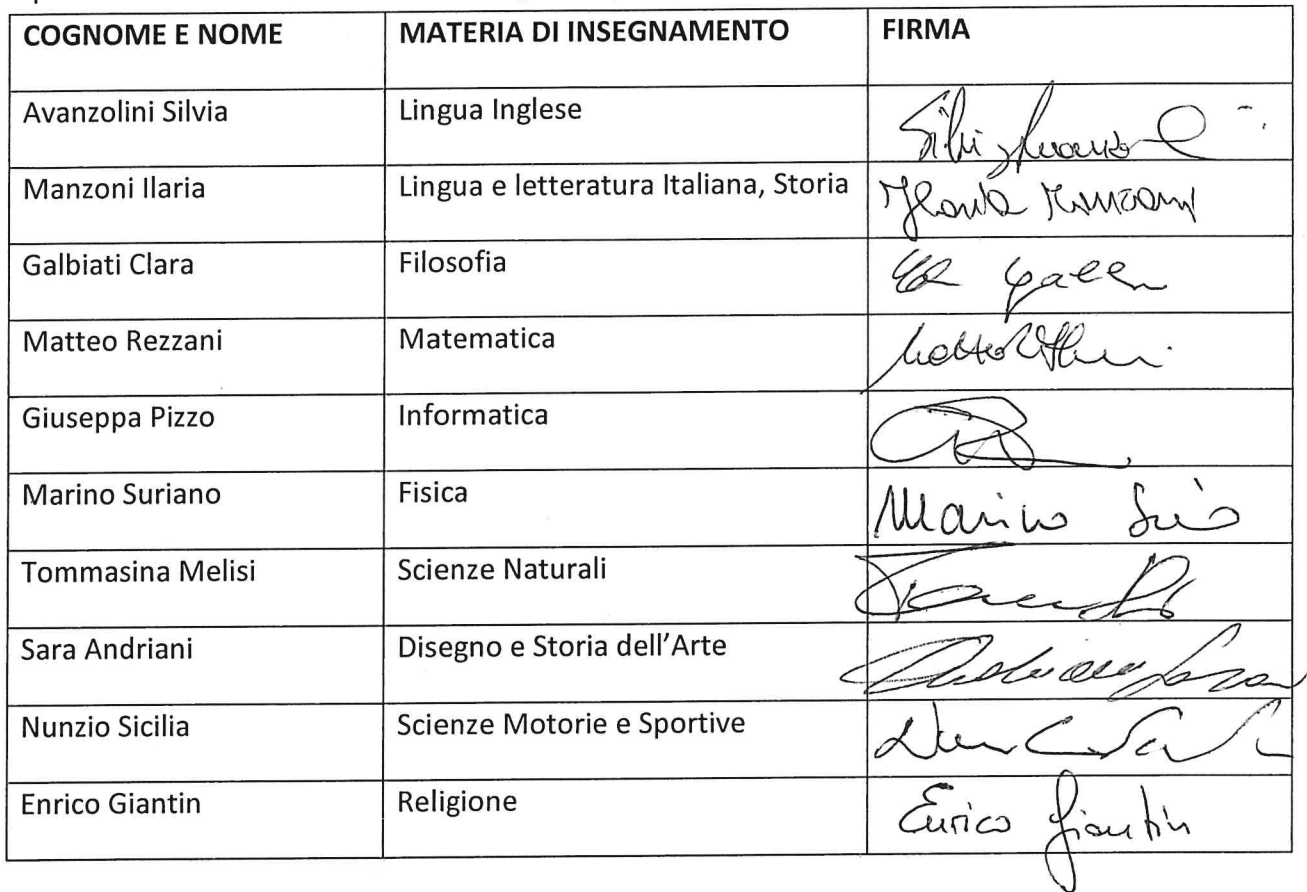 COGNOME E NOME MATERIA DI INSEGNAMENTO FIRMA
Avanzolini Silvia Lingua Inglese
Manzoni Ilaria Lingua e letteratura Italiana, Storia Ilaria Manzoni
Galbiati Clara Filosofia
Matteo Rezzani Matematica Matteo
Giuseppa Pizzo Informatica
Marino Suriano Fisica Marino
Tommasina Melisi Scienze Naturali
Sara Andriani Disegno e Storia dell'Arte
Nunzio Sicilia Scienze Motorie e Sportive
Enrico Giantin Religione Enrico Giantin